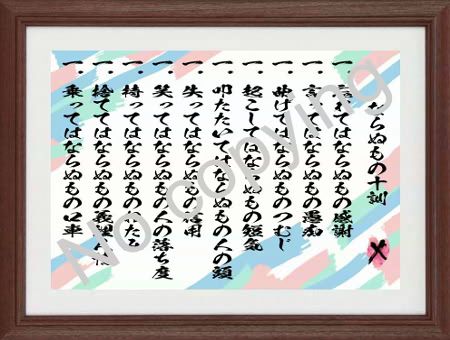 ならぬもの十訓
一．忘れてはならぬもの感謝
一．言ってはならぬもの愚痴
一．曲げてはならぬものつむじ
一．起こしてはならぬもの短気
一．叩たいてはならぬもの人の頭
一．失ってはならぬもの信用
一．笑ってはならぬもの人の落ち度
一．持ってはならぬもの
一．捨ててはならぬもの義理人情
一．乗ってはならぬもの口車
No copying